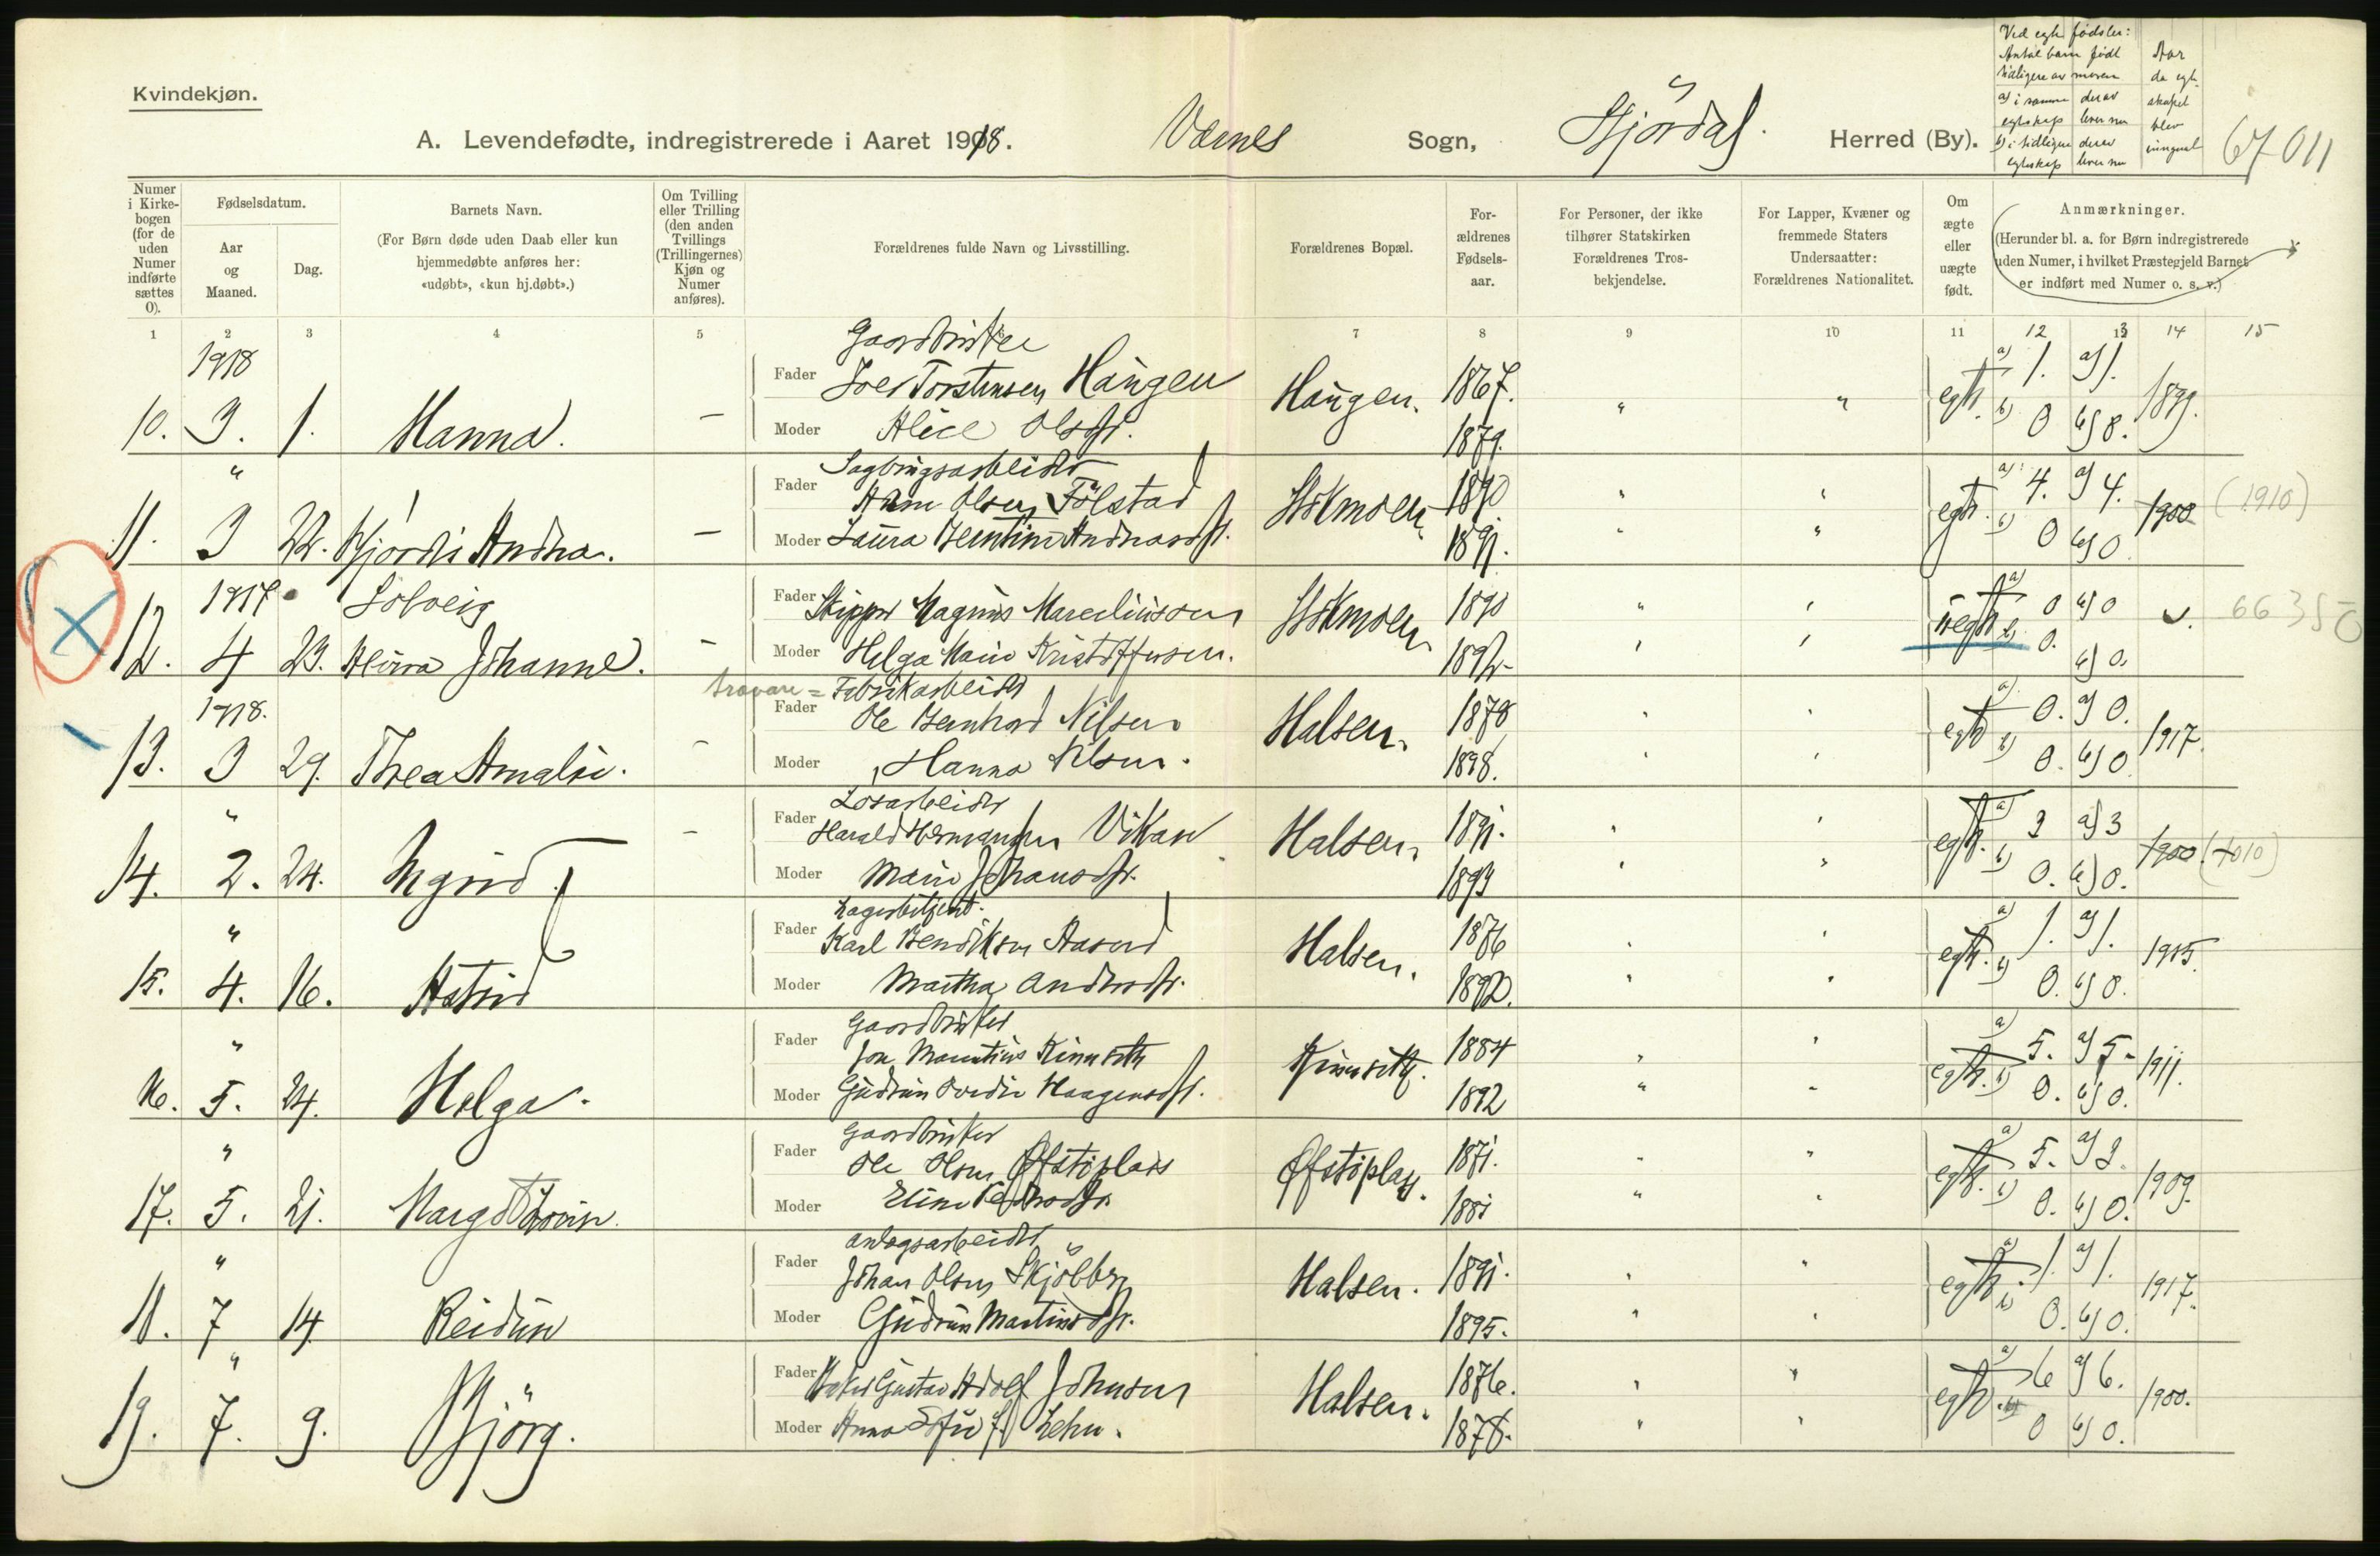 Kvindekjøn.
A. Levendefødte, indregistrerede i Aaret 1918. Værnes Sogn, Stjördal. Herred (By).
Ved egte fødsler:
Antal barn født
tidligere av moren
a) i samme egteskap
derav lever nu
b) i tidligere egteskap
derav lever nu
Aar
da egte-
skapet
blev
indgaat
67011
Numer i Kirkebogen (for de uden Numer indførte sættes 0).
Fødselsdatum.
Aar og Maaned.
Dag.
Barnets Navn.
(For Børn døde uden Daab eller kun hjemmedøbte anføres her: «udøbt», «kun hj.døbt».)
Om Tvilling eller Trilling (den anden Tvillings (Trillingernes) Kjøn og Numer anføres).
Forældrenes fulde Navn og Livsstilling.
Forældrenes Bopæl.
Forældrenes Fødselsaar.
For Personer, der ikke tilhører Statskirken Forældrenes Trosbekjendelse.
For Lapper, Kvæner og fremmede Staters Undersaatter: Forældrenes Nationalitet.
Om ægte eller uægte født.
Anmærkninger.
(Herunder bl. a. for Børn indregistrerede uden Numer, i hvilket Præstegjeld Barnet er indført med Numer o. s. v.)
1 2 3 4 5 7 8 9 10 11 12 13 14 15
1918
Gaardbruker
Fader Torstensen Haugen Haugen. 1867. " " egte. a) 1. a) 1. 1899.
10. 3. 1. Hanna. – Moder Alice Olsdtr. 1879. b) 0 b) 0.
"
Sagbrugsarbeider
Fader Olsen Følstad Stokmoen 1890 " " egte. a) 4. a) 4. 1900 (1910)
11. 3 22. Hjördis Andrea. – Moder Laura Berntine Andreasdtr. 1891. " " b) 0 b) 0.
1917 Solveig
Fader Skipper Magnus Marceliussen Stokmoen 1890 " " uegte a) 0 a) 0 6635
12. 4 23. Johanne. – Moder Helga Marie Kristoffersen. 1892. " " b) 0. b) 0.
1918.
trævare = Fabrikarbeider
Fader Ole Bernhard Nilsen Halsen. 1878 " " egte a) 0. a) 0. 1917.
13. 3 29. Thea Amalie. – Moder Hanna Nilsen. 1898. " " b) 0. b) 0.
"
Løsarbeider
Fader Harald Hermansen Vikan Halsen. 1891. " " egte. a) 3 a) 3 1900 (1910)
14. 2. 24. Ingrid. – Moder Marie Johansdtr. 1893 " " b) 0. b) 0.
"
Lagerbetjent.
Fader Karl Bendiksen Halsen. 1876 " " egte. a) 1. a) 1. 1915.
15. 4. 16. Astrid Moder Martha Andersdtr. 1892. " " b) 0. b) 0.
"
Gaardbruker
Fader Jon Mauritius Kinnseth Kinnseth. 1884 " " egte. a) 5. a) 5. 1911.
16. 5. 24. Helga. Moder Gudrun Haagensdtr. 1892 " " b) 0. b) 0.
"
Gaardbruker
Fader Ole Olsen Øfstiplass Øfstiplass. 1871. " " egte. a) 5. a) 3. 1909.
17. 5. 21. Margot Moder Eline Pedersdtr. 1881 " " b) 0. b) 0.
"
Anlegsarbeider
Fader Johan Olsen Skjølberg Halsen. 1891. " " egte. a) 1. a) 1. 1917.
18. 7 14. Reidun Moder Gudrun Martinsdtr. 1895. " " b) 0. b) 0.
"
Fader Baker Gustav Adolf Johnsen Halsen. 1876. " " egte. a) 6 a) 6. 1900.
19. 7. 9. Bjørg. Moder Anna Sofie f. Lehn. 1878. " " b) 0 b) 0.